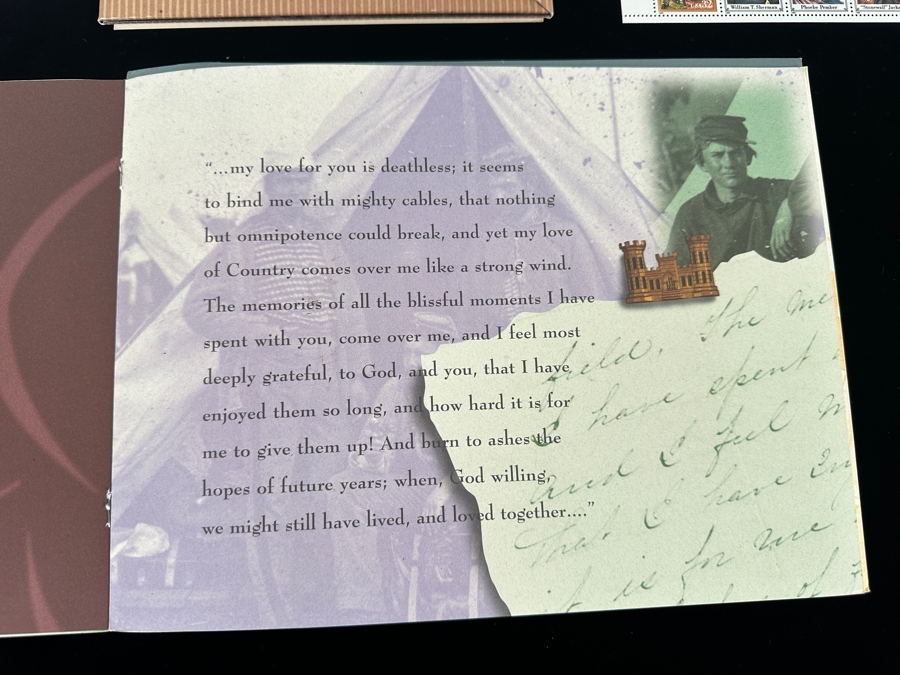 William T. Sherman
Phoebe Pember
"Stonewall"
"...my love for you is deathless; it seems
to bind me with mighty cables, that nothing
but omnipotence could break, and yet my love
of Country comes over me like a strong wind.
The memories of all the blissful moments I have
spent with you, come over me, and I feel most
deeply grateful, to God, and you, that I have
enjoyed them so long, and how hard it is for
me to give them up! And burn to ashes the
hopes of future years; when, God willing,
we might still have lived, and loved together...."
The me
I have spent
and I feel m
that I have en
it is for me
of